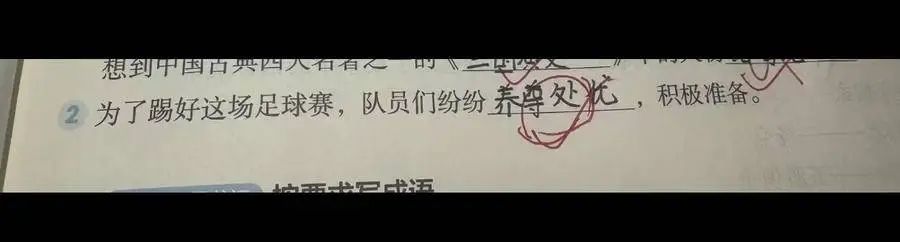 想到中国古典四大名著之一的《三国演义》中的人物
② 为了踢好这场足球赛，队员们纷纷养尊处优，积极准备。
按要求写成语